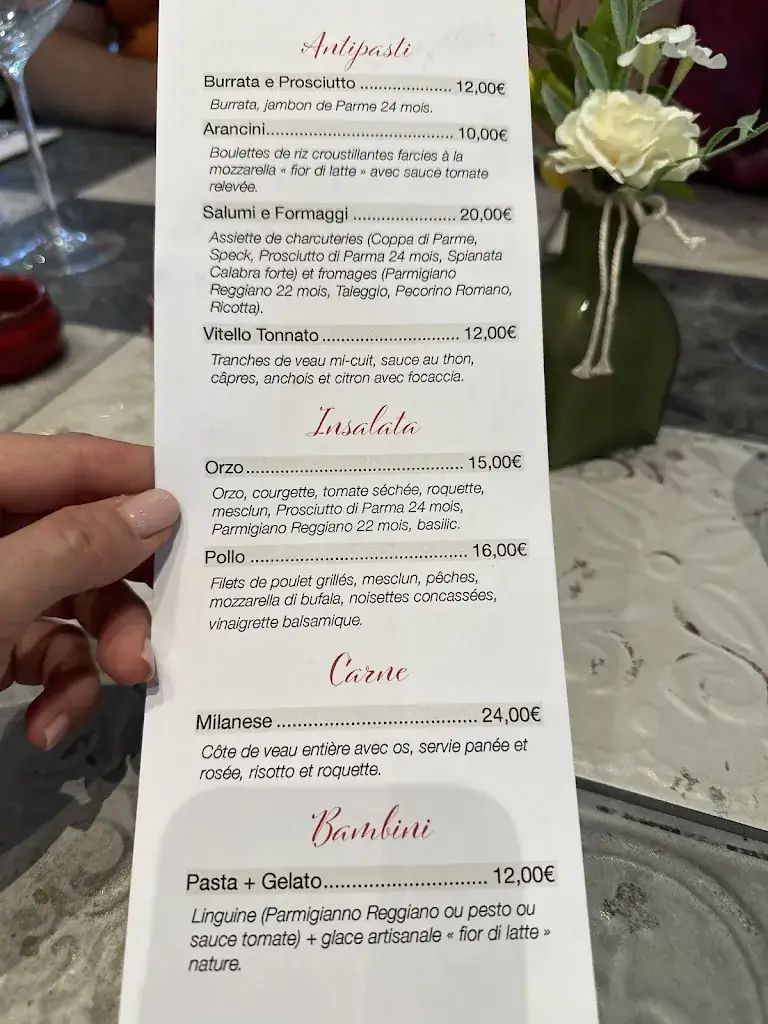 Antipasti
Burrata e Prosciutto .................... 12,00€
Burrata, jambon de Parme 24 mois.
Arancini......................................... 10,00€
Boulettes de riz croustillantes farcies à la
mozzarella « fior di latte » avec sauce tomate
relevée.
Salumi e Formaggi ...................... 20,00€
Assiette de charcuteries (Coppa di Parme,
Speck, Prosciutto di Parma 24 mois, Spianata
Calabra forte) et fromages (Parmigiano
Reggiano 22 mois, Taleggio, Pecorino Romano,
Ricotta).
Vitello Tonnato ............................. 12,00€
Tranches de veau mi-cuit, sauce au thon,
câpres, anchois et citron avec focaccia.
Insalata
Orzo.............................................. 15,00€
Orzo, courgette, tomate séchée, roquette,
mesclun, Prosciutto di Parma 24 mois,
Parmigiano Reggiano 22 mois, basilic.
Pollo .............................................. 16,00€
Filets de poulet grillés, mesclun, pêches,
mozzarella di bufala, noisettes concassées,
vinaigrette balsamique.
Carne
Milanese ....................................... 24,00€
Côte de veau entière avec os, servie panée et
rosée, risotto et roquette.
Bambini
Pasta + Gelato.............................. 12,00€
Linguine (Parmigianno Reggiano ou pesto ou
sauce tomate) + glace artisanale « fior di latte »
nature.